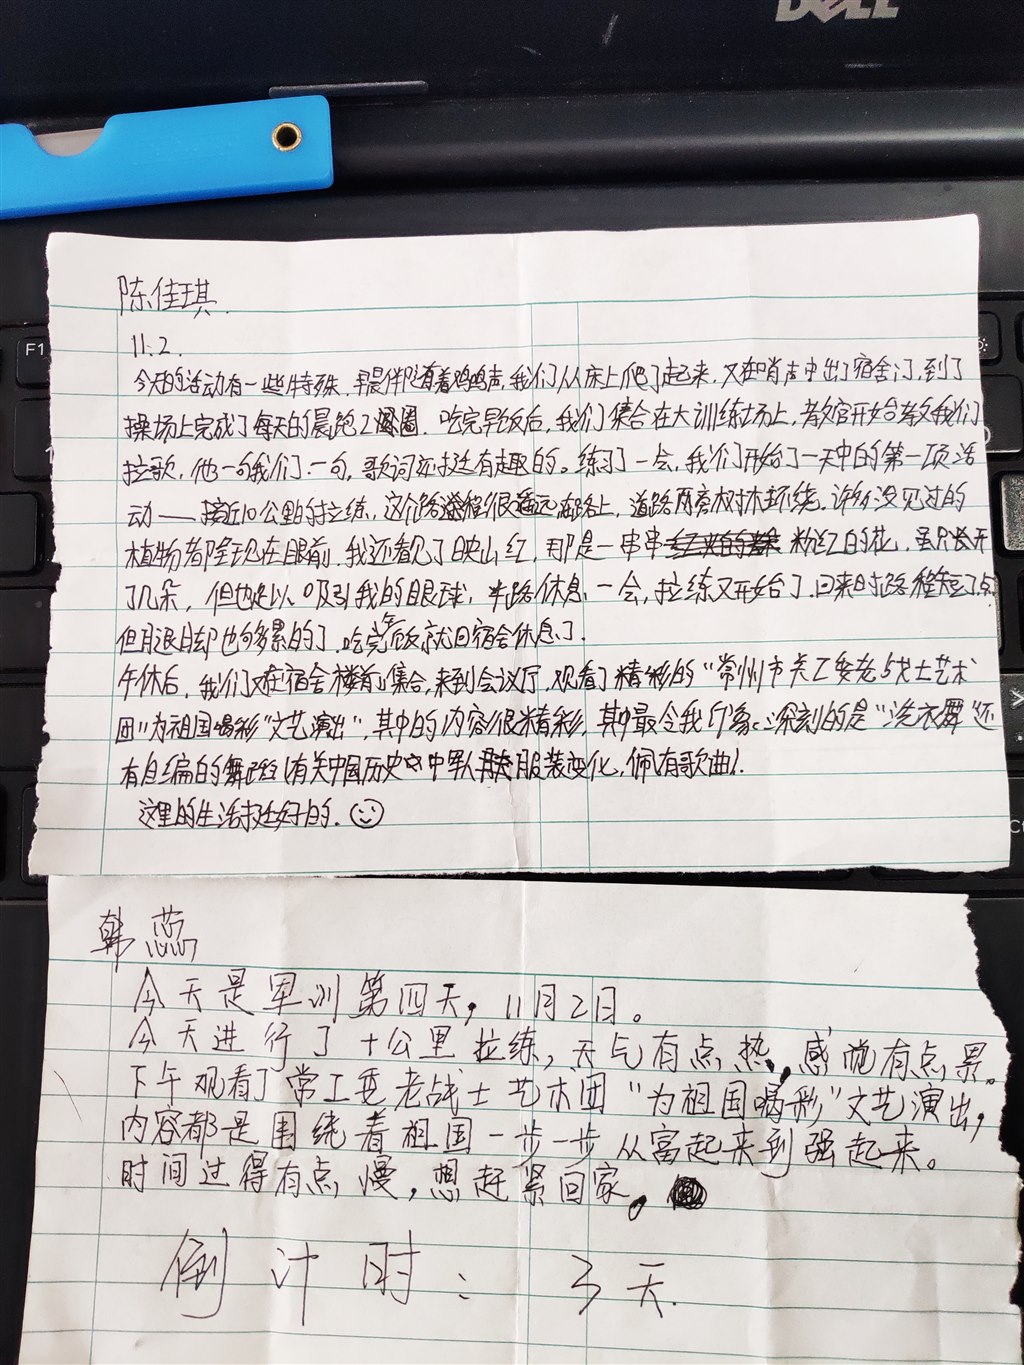 DELL
F1
陈佳琪.
11.2.
今天的活动有一些特殊,早晨伴随着鸡鸣声,我们从床上爬了起来,又在哨声中出了宿舍门,到了
操场上完成了每天的晨跑2圈.吃完早饭后,我们集合在大训练场上,教官开始教我们
拉歌,他一句我们一句,歌词还挺有趣的。练习了一会,我们开始了一天中的第一项活
动——接近10公里的拉练,这个路程很遥远,在路上,道路两旁树木环绕.许多没见过的
植物都全现在眼前,我还看见了映山红,那是一串串粉红的花,虽只长开
了几朵,但也足以吸引我的眼球,半路休息一会,拉练又开始了.回来时路程短了点
但月退脚也够累的了.吃完午饭就回宿舍休息了.
午休后,我们又在宿舍楼前集合,来到会议厅,观看了精彩的“常州市关工委老战士艺术
团”为祖国喝彩“文艺演出”,其中的内容很精彩,其中最令我印象深刻的是“洗衣舞”还
有自编的舞蹈(有关中国历史中军人服装变化,佩有歌曲).
这里的生活挺好的.
韩蕊
今天是军训第四天,11月2日。
今天进行了十公里拉练,天气有点热,感觉有点累。
下午观看了常工委老战士艺术团“为祖国喝彩”文艺演出,
内容都是围绕着祖国一步一步从富起来到强起来。
时间过得有点慢,想赶紧回家。
倒计时: 3天.